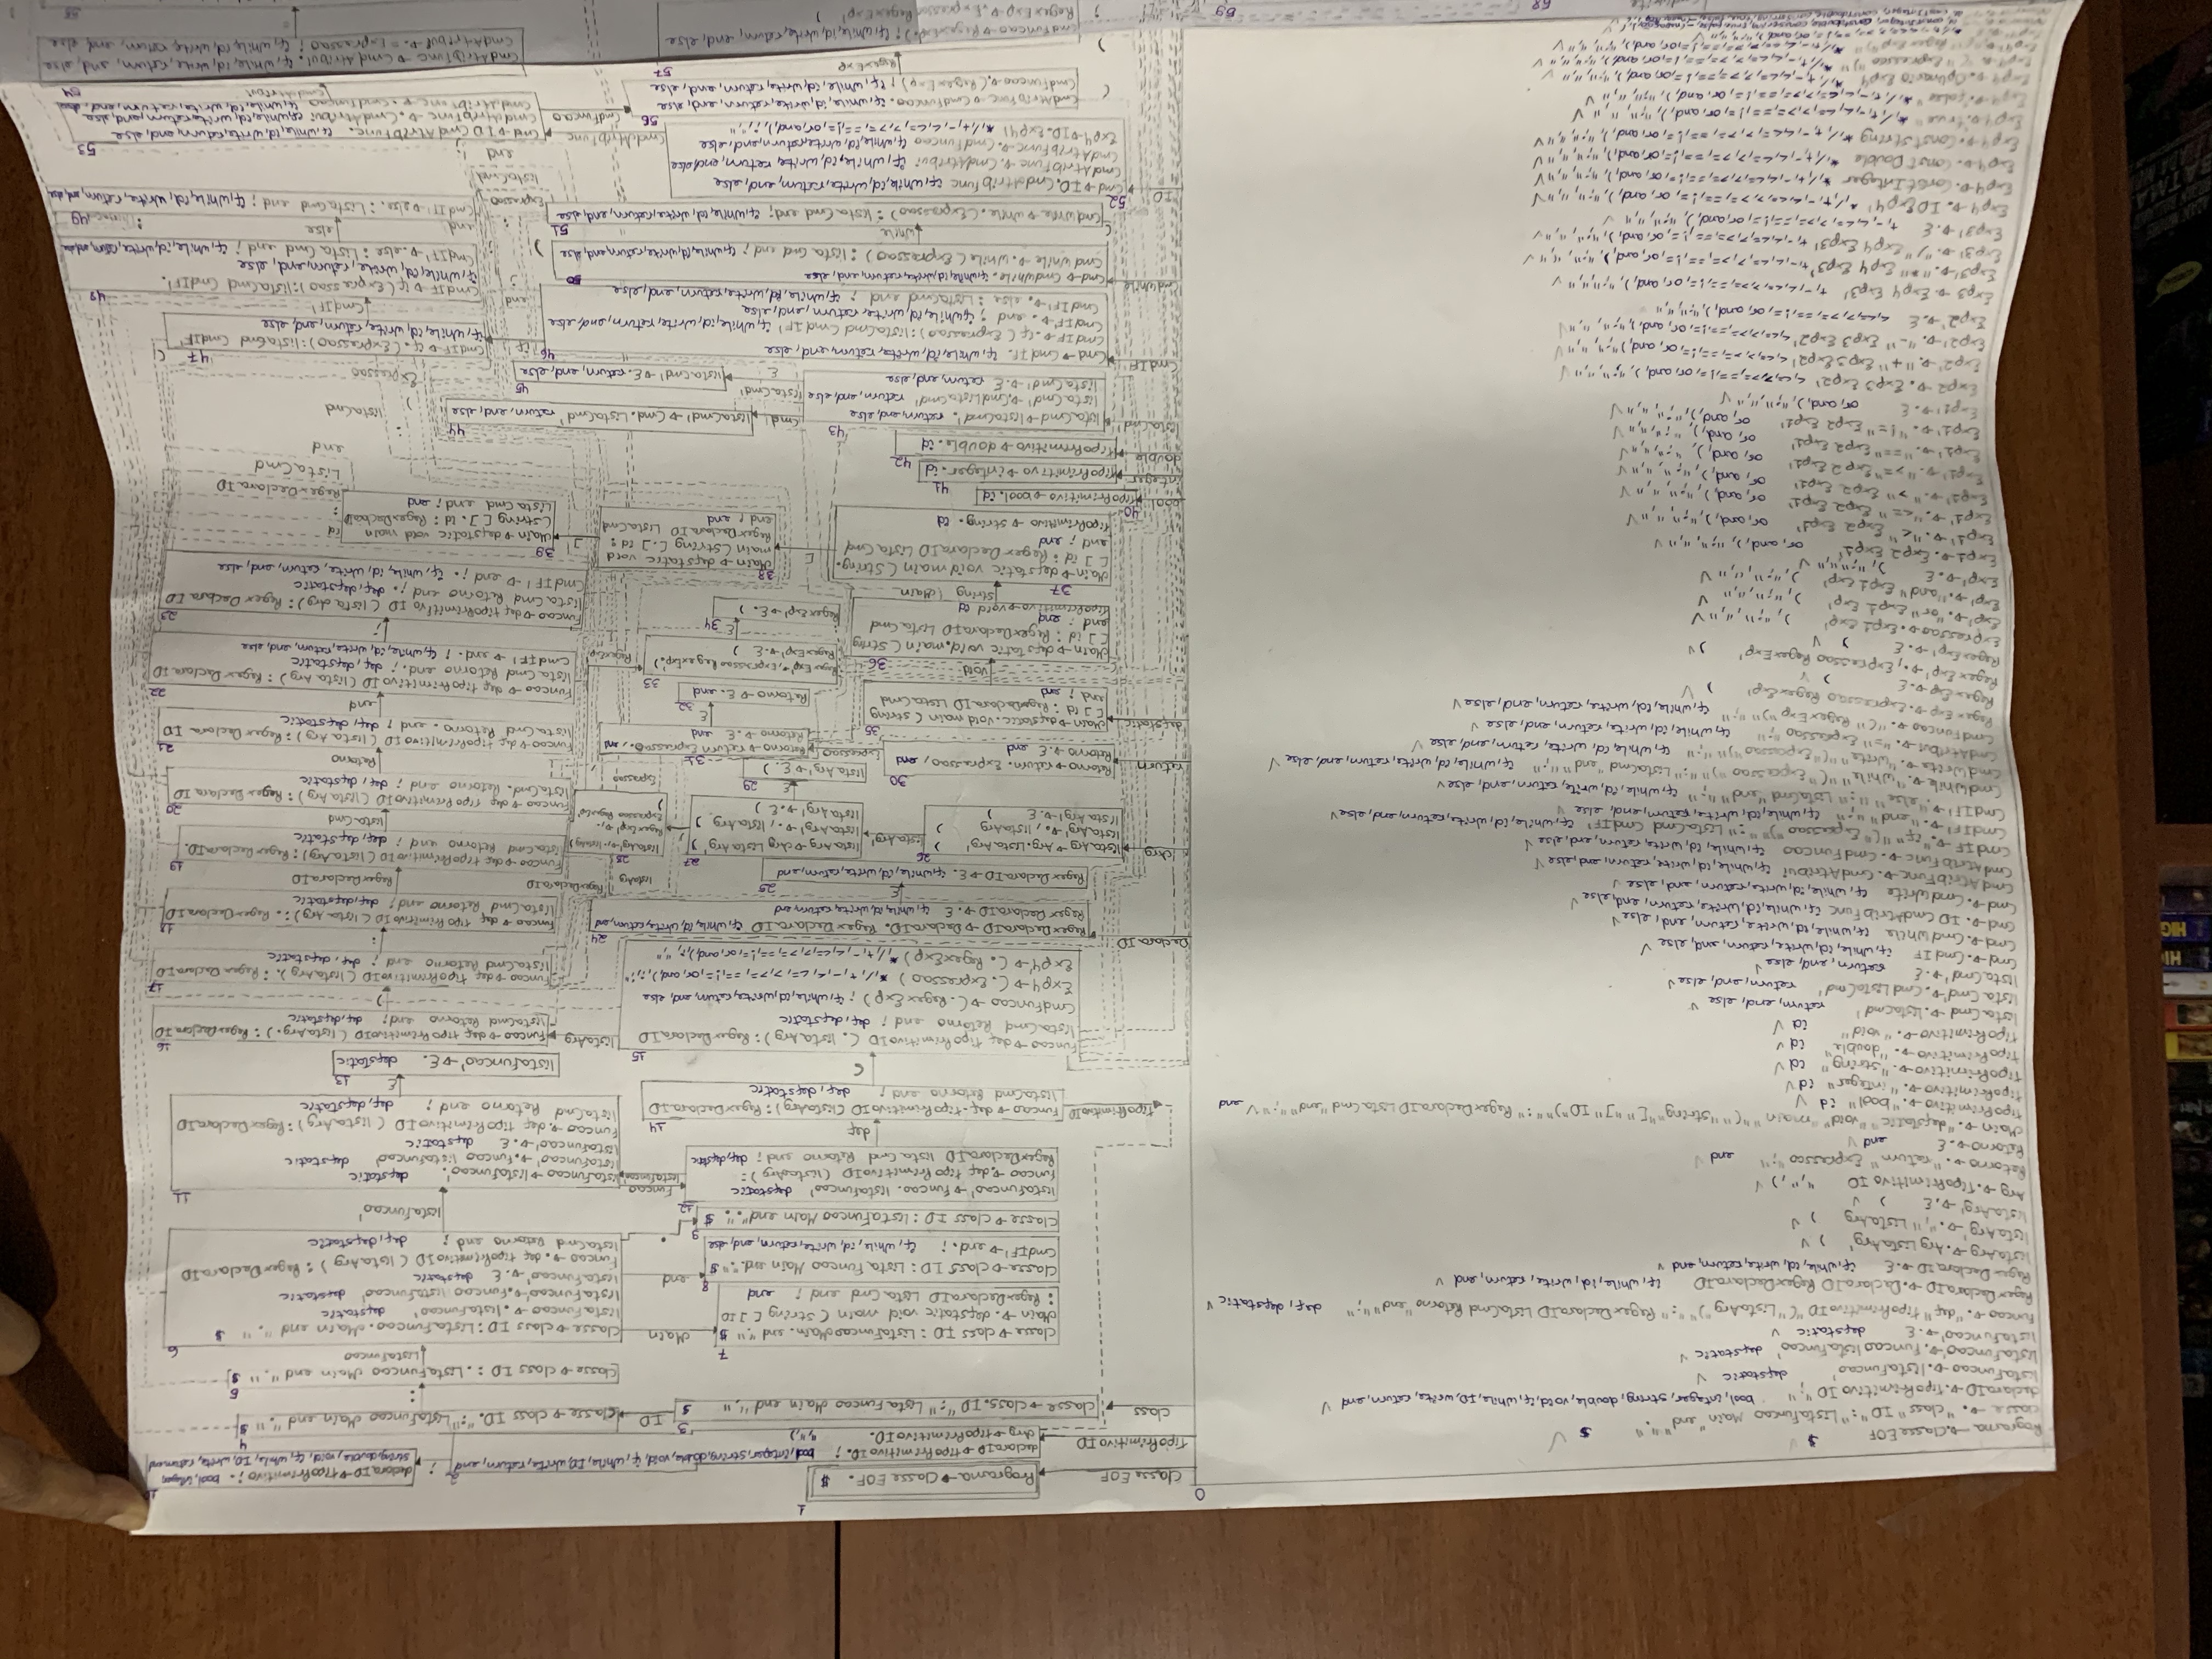 0
Programa → .Classe EOF $
classe → . "class" ID ":" ListaFuncao Main "end" "." $
declaraID → .TipoPrimitivo ID ";" bool, integer, string, double, void, if, while, ID, write, return, end
listaFuncao → .listaFuncao' defstatic
listaFuncao' → .Funcao listaFuncao' defstatic
listaFuncao' → .ε defstatic
Funcao → . "def" TipoPrimitivo ID "(" ListaArg ")" ":" RegexDeclaraID ListaCmd Retorno "end" ";" def, defstatic
RegexDeclaraID → .DeclaraID RegexDeclaraID if, while, id, write, return, end
RegexDeclaraID → .ε if, while, id, write, return, end
listaArg → .Arg ListaArg' )
listaArg' → . "," ListaArg )
listaArg' → .ε )
Arg → .TipoPrimitivo ID ",", )
Retorno → . "return" Expressao ";" end
Retorno → .ε end
Main → . "defstatic" "void" "main" "(" "String" "[" "]" ID ")" ":" RegexDeclaraID ListaCmd "end" ";" end
tipoPrimitivo → . "bool" id
tipoPrimitivo → . "integer" id
tipoPrimitivo → . "string" id
tipoPrimitivo → . "double" id
tipoPrimitivo → . "void" id
lista Cmd → .Listacmd' return, end, else
lista Cmd' → .Cmd ListaCmd' return, end, else
lista Cmd' → .ε return, end, else
Cmd → .Cmd IF if, while, id, write, return, end, else
Cmd → .Cmd While if, while, id, write, return, end, else
Cmd → .ID CmdAtribFunc if, while, id, write, return, end, else
Cmd → .CmdWrite if, while, id, write, return, end, else
CmdAtribFunc → .CmdAtribui if, while, id, write, return, end, else
CmdAtribFunc → .CmdFuncao if, while, id, write, return, end, else
CmdIF → . "if" "(" Expressao ")" ":" ListaCmd CmdIF' if, while, id, write, return, end, else
CmdIF' → . "end" ";" if, while, id, write, return, end, else
CmdIF' → . "else" ":" ListaCmd "end" ";" if, while, id, write, return, end, else
CmdWhile → . "while" "(" Expressao ")" ":" ListaCmd "end" ";" if, while, id, write, return, end, else
CmdWrite → . "write" "(" Expressao ")" ";" if, while, id, write, return, end, else
CmdAtribui → . "=" Expressao ";" if, while, id, write, return, end, else
CmdFuncao → . "(" RegexExp ")" ";" if, while, id, write, return, end, else
Regex Exp → .Expressao RegexExp' )
Regex Exp → .ε )
Regex Exp' → ., Expressao RegexExp' )
RegexExp' → .ε )
Expressao → .Exp1 Exp' ), ";", ","
Exp' → . "or" Exp1 Exp' ), ";", ","
Exp' → . "and" Exp1 Exp' ), ";", ","
Exp' → .ε ), ";", ","
Exp1 → .Exp2 Exp1' or, and, ), ";", ","
Exp1' → . "<" Exp2 Exp1' or, and, ), ";", ","
Exp1' → . "<=" Exp2 Exp1' or, and, ), ";", ","
Exp1' → . ">" Exp2 Exp1' or, and, ), ";", ","
Exp1' → . ">=" Exp2 Exp1' or, and, ), ";", ","
Exp1' → . "==" Exp2 Exp1' or, and, ), ";", ","
Exp1' → . "!=" Exp2 Exp1' or, and, ), ";", ","
Exp1' → .ε or, and, ), ";", ","
Exp2 → .Exp3 Exp2' <, <=, >, >=, ==, !=, or, and, ), ";", ","
Exp2' → . "+" Exp3 Exp2' <, <=, >, >=, ==, !=, or, and, ), ";", ","
Exp2' → . "-" Exp3 Exp2' <, <=, >, >=, ==, !=, or, and, ), ";", ","
Exp2' → .ε <, <=, >, >=, ==, !=, or, and, ), ";", ","
Exp3 → .Exp4 Exp3' +, -, <, <=, >, >=, ==, !=, or, and, ), ";", ","
Exp3' → . "*" Exp4 Exp3' +, -, <, <=, >, >=, ==, !=, or, and, ), ";", ","
Exp3' → . "/" Exp4 Exp3' +, -, <, <=, >, >=, ==, !=, or, and, ), ";", ","
Exp3' → .ε +, -, <, <=, >, >=, ==, !=, or, and, ), ";", ","
Exp4 → .ID Exp4' *, /, +, -, <, <=, >, >=, ==, !=, or, and, ), ";", ","
Exp4 → .ConstInteger *, /, +, -, <, <=, >, >=, ==, !=, or, and, ), ";", ","
Exp4 → .ConstDouble *, /, +, -, <, <=, >, >=, ==, !=, or, and, ), ";", ","
Exp4 → .ConstString *, /, +, -, <, <=, >, >=, ==, !=, or, and, ), ";", ","
Exp4 → . "true" *, /, +, -, <, <=, >, >=, ==, !=, or, and, ), ";", ","
Exp4 → . "false" *, /, +, -, <, <=, >, >=, ==, !=, or, and, ), ";", ","
Exp4 → .OpUnario Exp4 *, /, +, -, <, <=, >, >=, ==, !=, or, and, ), ";", ","
Exp4 → . "(" Expressao ")" *, /, +, -, <, <=, >, >=, ==, !=, or, and, ), ";", ","
Classe EOF
1
Programa → Classe EOF. $
TipoPrimitivo ID
2
declaraID → tipoPrimitivo ID. ; bool, integer, string, double, void, if, while, ID, write, return, end
Arg → tipoPrimitivo ID. ",", )
;
declaraID → tipoPrimitivo ;. bool, integer,
string, double, void, if, while, ID, write, return, end
class
3
Classe → class. ID ":" Lista Funcao Main end "." $
ID
4
Classe → class ID. ":" ListaFuncao Main end "." $
:
5
Classe → class ID : . ListaFuncao Main end "." $
ListaFuncao
6
Classe → class ID : ListaFuncao. Main end "." $
listaFuncao → .listaFuncao' defstatic
listaFuncao' → .Funcao listaFuncao' defstatic
listaFuncao' → .ε defstatic
Funcao → .def tipoPrimitivo ID (listaArg) : RegexDeclaraID
listaCmd Retorno end ; def, defstatic
Main
7
Classe → class ID : ListaFuncao Main. end "." $
Main → .defstatic void main ( String [ ] ID
: RegexDeclaraID Lista Cmd end ; end
end
8
Classe → class ID : Lista Funcao Main end. "." $
CmdIF' → end. ; if, while, id, write, return, end, else
.
9
Classe → class ID : ListaFuncao Main end "." . $
listaFuncao'
11
listaFuncao → listaFuncao'. defstatic
listaFuncao' → .Funcao listaFuncao' defstatic
listaFuncao' → .ε defstatic
Funcao → .def tipoPrimitivo ID (listaArg) : RegexDeclaraID
listaCmd Retorno end ; def, defstatic
Funcao
listaFuncao
12
listaFuncao' → Funcao. listaFuncao' defstatic
Funcao → .def tipo PrimitivoID (listaArg) :
RegexDeclaraID lista Cmd Retorno end ; def, defstatic
ε
13
listaFuncao' → ε. defstatic
def
14
TipoPrimitivo ID
Funcao → def. tipoPrimitivo ID (listaArg) : RegexDeclaraID
listaCmd Retorno end ; def, defstatic
(
15
Funcao → def tipoPrimitivo ID (. listaArg) : RegexDeclaraID
listaCmd Retorno end ; def, defstatic
CmdFuncao → (. RegexExp) ; if, while, id, write, return, end, else
Exp4 → (. Expressao) *, /, +, -, <, <=, >, >=, ==, !=, or, and, ), ;, ","
Exp4' → (. RegexExp) *, /, +, -, <, <=, >, >=, ==, !=, or, and, ), ;, ","
listaArg
16
Funcao → def tipoPrimitivoID (listaArg. ) : RegexDeclaraID
listaCmd Retorno end; def, defstatic
)
17
Funcao → def tipoPrimitivo ID (listaArg). : RegexDeclaraID
listaCmd Retorno end ; def, defstatic
:
18
Funcao → def tipoPrimitivo ID (listaArg) :. RegexDeclaraID
listaCmd Retorno end; def, defstatic
RegexDeclaraID
19
Funcao → def tipoPrimitivo ID (listaArg) : RegexDeclaraID.
listaCmd Retorno end ; def, defstatic
listaCmd
20
Funcao → def tipoPrimitivo ID (listaArg) : Regex Declara ID
listaCmd. Retorno end ; def, defstatic
Retorno
21
Funcao → def tipoPrimitivo ID (listaArg) : RegexDeclara ID
listaCmd Retorno. end ; def, defstatic
end
22
Funcao → def tipoPrimitivo ID (listaArg) : RegexDeclaraID
lista Cmd Retorno end. ; def, defstatic
CmdIF' → end. ; if, while, id, write, return, end, else
;
23
Funcao → def tipoPrimitivo ID (lista Arg) : Regex Declara ID
lista Cmd Retorno end ;. def, defstatic
CmdIF' → end ;. if, while, id, write, return, end, else
Declara ID
24
RegexDeclaraID → DeclaraID. RegexDeclaraID if, while, id, write, return, end
RegexDeclaraID → .ε if, while, id, write, return, end
ε
25
RegexDeclaraID → ε. if, while, id, write, return, end
Arg
26
listaArg → Arg. ListaArg' )
listaArg' → ., listaArg )
listaArg' → .ε )
listaArg'
27
listaArg → Arg ListaArg'. )
listaArg' → ., listaArg )
listaArg' → .ε )
listaArg
28
Expressao RegexExp'
)
Expressao
ε
29
listaArg' → ε. )
return
30
Retorno → return. Expressao, end
Retorno → .ε end
Expressao
31
Retorno → return Expressao. , end
Retorno → .ε end
ε
32
Retorno → ε. end
RegexExp'
33
RegexExp' → , Expressao RegexExp'. )
RegexExp' → .ε )
ε
34
RegexExp' → ε. )
defstatic
35
Main → defstatic. void main ( string
[ ] id : RegexDeclaraID ListaCmd
end ; end
void
36
Main → defstatic void. main ( String
[ ] id : RegexDeclaraID ListaCmd
end ; end
TipoPrimitivo → void id
String (Main
37
Main → defstatic void main ( String.
[ ] id : RegexDeclaraID ListaCmd
end ; end
tipoPrimitivo → string. id
[
38
Main → defstatic void
main ( String [. ] id :
RegexDeclaraID ListaCmd
end ; end
]
39
Main → defstatic void main
(string [ ]. id : RegexDeclaraID
Lista Cmd end ; end
id
:
RegexDeclara ID
ListaCmd
end
bool
40
tipoPrimitivo → bool. id
integer
41
tipoPrimitivo → integer. id
double
42
tipoPrimitivo → double. id
listaCmd'
43
listaCmd → listaCmd'. return, end, else
listaCmd' → .CmdListaCmd' return, end, else
listaCmd' → .ε return, end, else
Cmd
44
listaCmd' → Cmd. ListaCmd' return, end, else
listaCmd'
ε
45
listaCmd' → ε. return, end, else
:
listaCmd
)
Expressao
(
CmdIF
46
Cmd → CmdIF. if, while, id, write, return, end, else
CmdIF → .if ( Expressao) : listaCmd CmdIF' if, while, id, write, return, end, else
CmdIF' → . end ; if, while, id, write, return, end, else
CmdIF' → . else : ListaCmd end ; if, while, id, write, return, end, else
if
47
CmdIF → if .(Expressao) : listaCmd CmdIF'
if, while, id, write, return, end, else
CmdIF'
48
CmdIF → if (Expressao) : listaCmd CmdIF'.
if, while, id, write, return, end, else
CmdIF' → . else : Lista Cmd end ; if, while, id, write, return, end, else
end
;
else
49
CmdIF' → else. : ListaCmd end ; if, while, id, write, return, end, else
CmdWhile
50
Cmd → CmdWhile. if, while, id, write, return, end, else
Cmd While → .While ( Expressao ) : lista Cmd end ; if, while, id, write, return, end, else
while
51
CmdWhile → while. (Expressao) : listaCmd end; if, while, id, write, return, end, else
(
)
:
Expressao
listaCmd
end
;
ID
52
Cmd → ID. CmdAtribFunc if, while, id, write, return, end, else
CmdAtribFunc → . CmdAtribui if, while, id, write, return, end, else
CmdAtribFunc → . CmdFuncao if, while, id, write, return, end, else
Exp4 → ID. Exp4' *, /, +, -, <, <=, >, >=, ==, !=, or, and, ), ;, ","
CmdAtribFunc
53
Cmd → ID CmdAtribFunc. if, while, id, write, return, end, else
CmdAtribFunc → . CmdAtribui if, while, id, write, return, end, else
CmdAtribFunc → . CmdFuncao if, while, id, write, return, end, else
CmdAtribui
54
CmdAtribFunc → CmdAtribui. if, while, id, write, return, end, else
CmdAtribui → . = Expressao ; if, while, id, write, return, end, else
55
CmdFuncao
56
CmdAtribFunc → CmdFuncao. if, while, id, write, return, end, else
CmdFuncao → .(RegexExp) ; if, while, id, write, return, end, else
(
RegexExp
57
)
CmdFuncao → (RegexExp.) ; if, while, id, write, return, end, else
RegexExp → .Expressao RegexExp' )
;
58
59